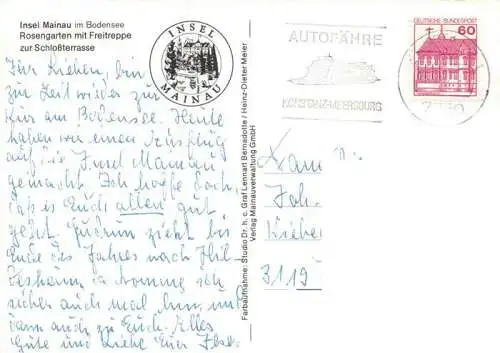 Insel Mainau im Bodensee
Rosengarten mit Freitreppe
zur Schloßterrasse
INSEL
MAINAU
AUTOFÄHRE
KONSTANZ-MEERSBURG
DEUTSCHE BUNDESPOST
60
Ihr Lieben, bin
zur Zeit wieder zur
Kur am Bodensee. Heute
haben wir einen Ausflug
auf die Insel Mainau
gemacht. Ich hoffe doch,
daß es Euch allen gut
geht. Gudrun zieht bis
Ende des Jahres nach Hil-
desheim, da komme ich
sicher auch mal hin, und
dann auch zu Euch. Alles
Gute und Liebe Eure Ilse
Farbaufnahme: Studio Dr. h. c. Graf Lennart Bernadotte / Heinz-Dieter Meier
Verlag Mainauverwaltung GmbH
Joh.
3119